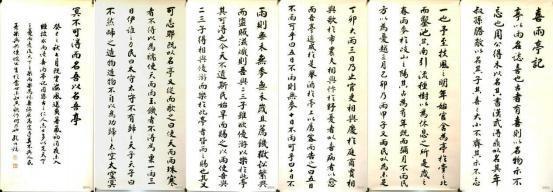 喜雨亭記
亭以雨名誌喜也古者有喜則以名物示不
忘也周公得禾以名其書漢武得鼎以名其年
叔孫勝敵以名其子其喜之大小不齊其示不忘
一也予至扶風之明年始治官舍為亭於堂之北
而鑿池其南引流種樹以為休息之所是歲之
春雨麥於岐山之陽其占為有年既而彌月不雨民
方以為憂越三月乙卯乃雨甲子又雨民以為未足
丁卯大雨三日乃止官吏相與慶於庭商賈相
與歌於市農夫相與忭於野憂者以喜病者以愈
而吾亭適成於是舉酒於亭上以屬客而告之曰五日
不雨可乎曰五日不雨則無麥十日不雨可乎曰十日不
雨則無禾無麥無禾歲且薦饑獄訟繁興
而盜賊滋熾則吾與二三子雖欲優游以樂於此亭
其可得耶今天不遺斯民始旱而賜之以雨使吾與
二三子得相與優游而樂於此亭者皆雨之賜也其又
可忘耶既以名亭又從而歌之曰使天而雨珠寒
者不得以為襦使天而雨玉饑者不得以為粟一雨三
日伊誰之力民曰太守太守不有歸之天子天子曰
不然歸之造物造物不自以為功歸之太空太空冥
冥不可得而名吾以名吾亭